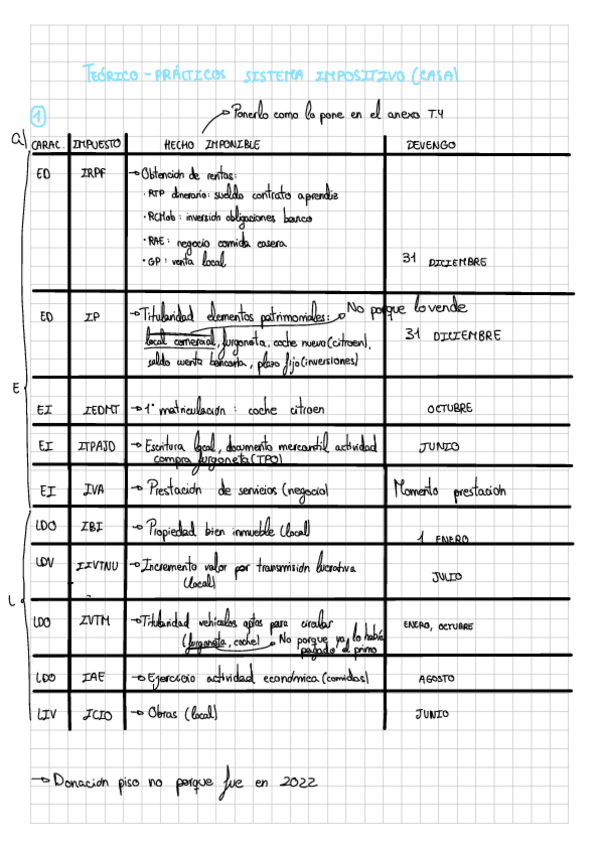 TEÓRICO-PRÁCTICOS SISTEMA IMPOSITIVO (CASA)
1
→ Ponerlo como lo pone en el anexo T.4
a) CARAC. IMPUESTO HECHO IMPONIBLE DEVENGO
ED IRPF → Obtención de rentas:
· RTP dinerario: sueldo contrato aprendiz
· RCMob: inversión obligaciones banco
· RAE: negocio comida casera
· GP: venta local
31 DICIEMBRE
ED IP → Titularidad elementos patrimoniales: → No porque lo vende
local comercial, furgoneta, coche nuevo (citroen),
saldo cuenta bancaria, plazo fijo (inversiones)
31 DICIEMBRE
E
EI IEDMT → 1ª matriculación: coche citroen OCTUBRE
EI ITPAJD → Escritura local, documento mercantil actividad
compra furgoneta (TPO)
JUNIO
EI IVA → Prestación de servicios (negocio) Momento prestación
LDO IBI → Propiedad bien inmueble (local)
1 ENERO
LDV IIVTNU → Incremento valor por transmisión lucrativa
(local)
JULIO
L
LDO IVTM → Titularidad vehículos aptos para circular
(furgoneta, coche) → No porque ya lo había
pagado el primo
ENERO, OCTUBRE
LDO IAE → Ejercicio actividad económica (comidas) AGOSTO
LIV ICIO → Obras (local) JUNIO
→ Donación piso no porque fue en 2022